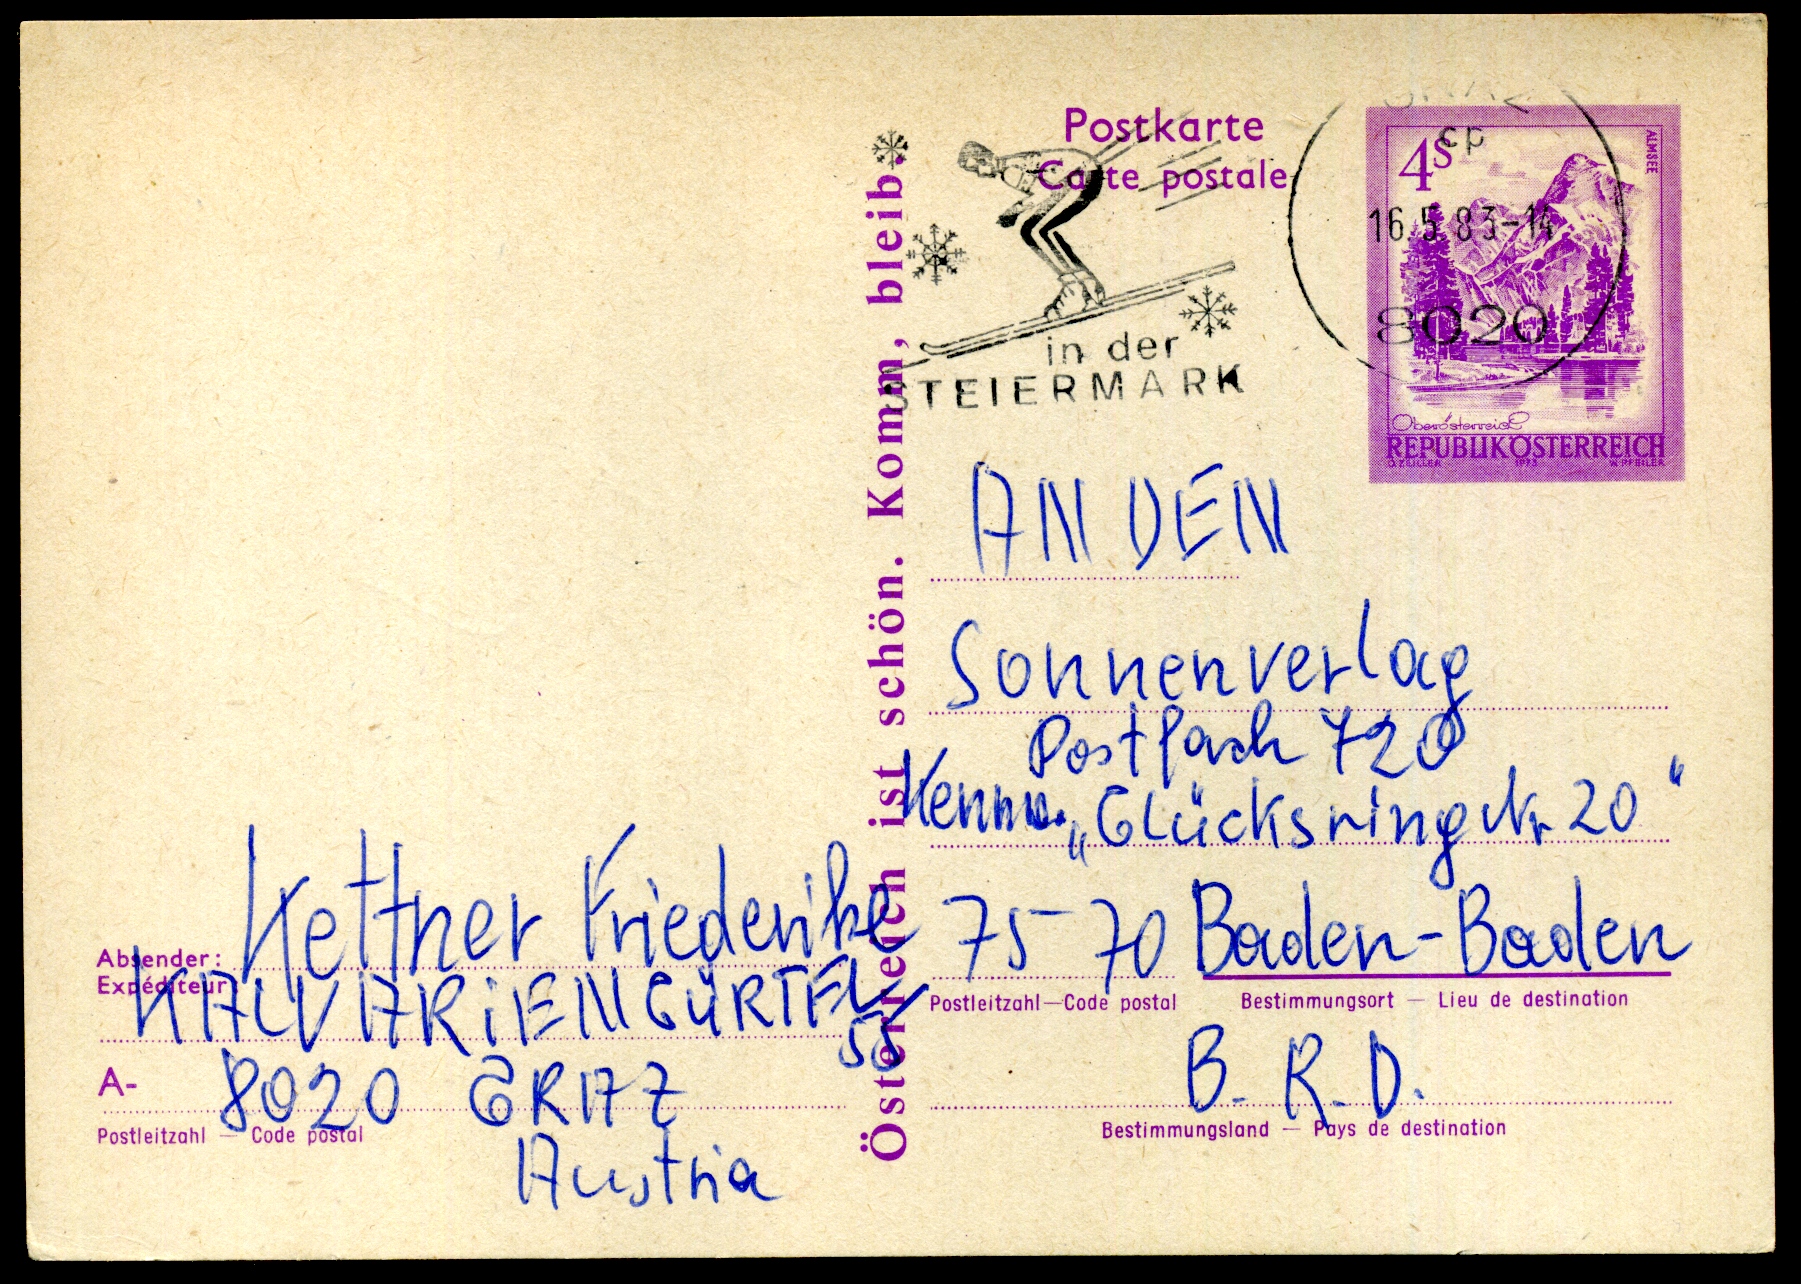 Postkarte
Carte postale
in der
STEIERMARK
GRAZ
cp
16.5.83-14
8020
4S
ALMSEE
Oberösterreich
REPUBLIK ÖSTERREICH
O. ZEILLER 1973 W. PFEILER
Österreich ist schön. Komm, bleib.
AN DEN
Sonnenverlag
Postfach 720
Kennw. „Glücksring Nr 20"
75-70 Baden-Baden
Postleitzahl — Code postal Bestimmungsort — Lieu de destination
B. R. D.
Bestimmungsland — Pays de destination
Absender: Kettner Friederike
Expéditeur: KALVARiENGÜRTEL
55
A- 8020 GRAZ
Postleitzahl — Code postal
Austria